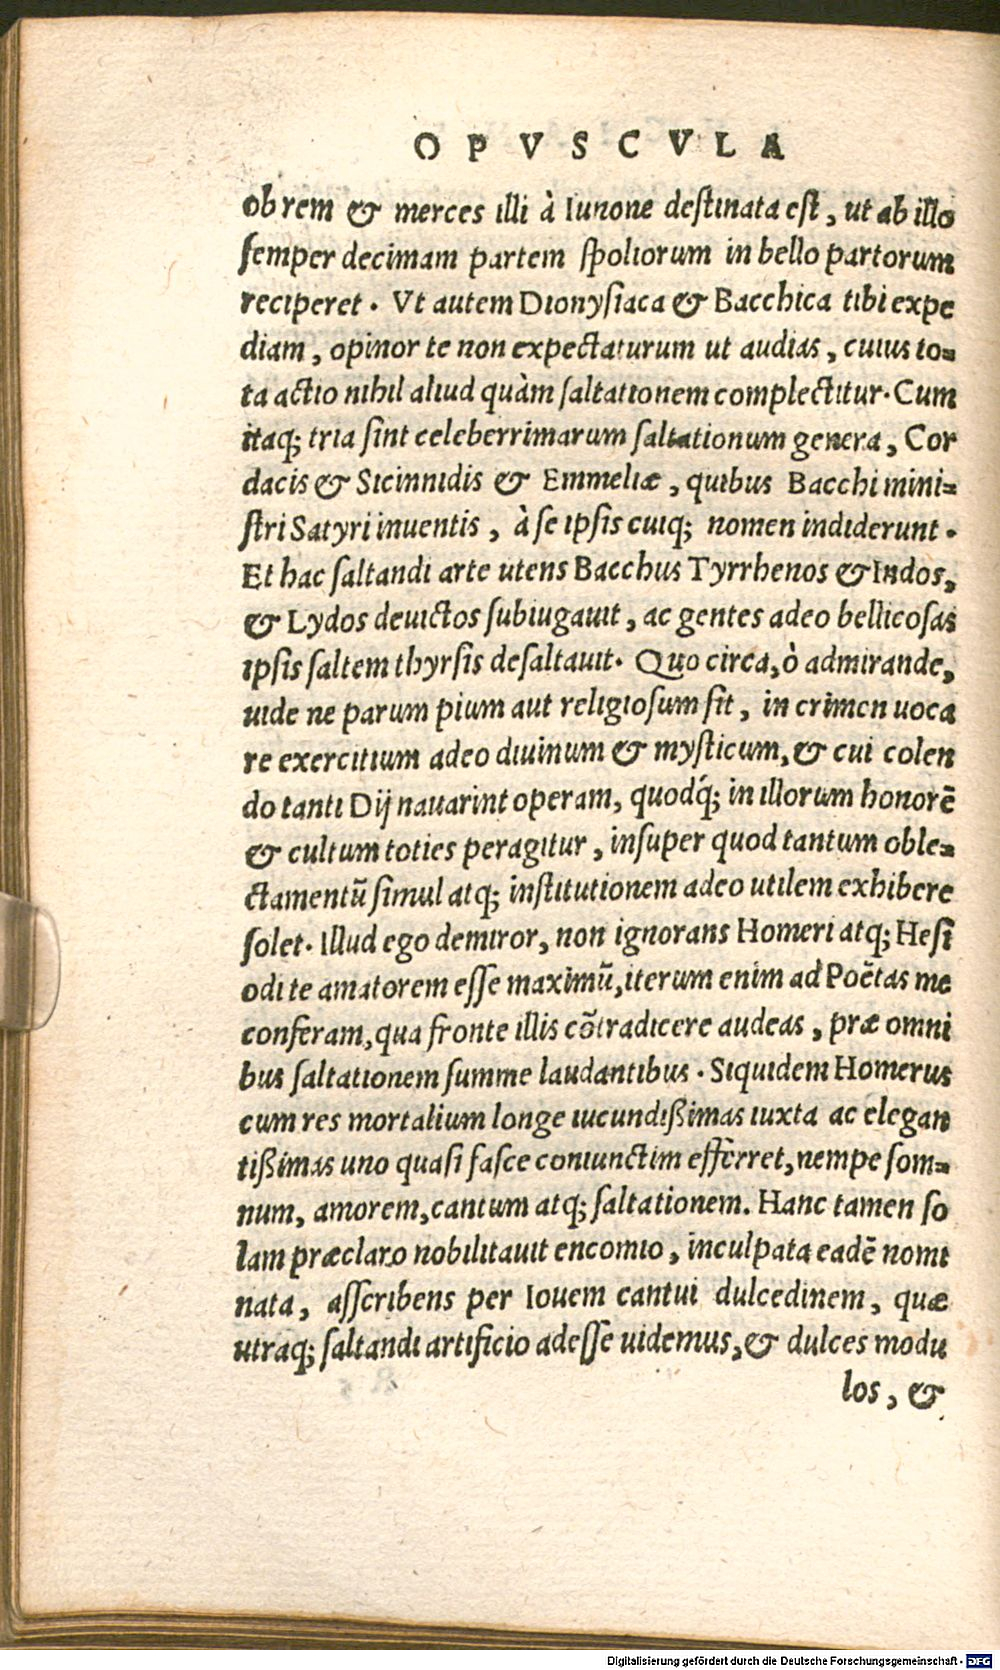 OPVSCVLA
ob rem & merces illi à Iunone destinata est, ut ab illo
semper decimam partem spoliorum in bello partorum
reciperet. Vt autem Dionysiaca & Bacchica tibi expe
diam, opinor te non expectaturum ut audias, cuius to=
ta actio nihil aliud quàm saltationem complectitur. Cum
itaq; tria sint celeberrimarum saltationum genera, Cor
dacis & Sicinnidis & Emmeliæ, quibus Bacchi mini=
stri Satyri inuentis, à se ipsis cuiq; nomen indiderunt.
Et hac saltandi arte utens Bacchus Tyrrhenos & Indos,
& Lydos deuictos subiugauit, ac gentes adeo bellicosas
ipsis saltem thyrsis desaltauit. Quo circa, ò admirande,
uide ne parum pium aut religiosum sit, in crimen uoca
re exercitium adeo diuinum & mysticum, & cui colen
do tanti Dij nauarint operam, quodq́; in illorum honorē
& cultum toties peragitur, insuper quod tantum oble=
ctamentū simul atq; institutionem adeo utilem exhibere
solet. Illud ego demiror, non ignorans Homeri atq; Hesi
odi te amatorem esse maximū, iterum enim ad Poëtas me
conferam, qua fronte illis cōtradicere audeas, præ omni
bus saltationem summe laudantibus. Siquidem Homerus
cum res mortalium longe iucundißimas iuxta ac elegan
tißimas uno quasi fasce coniunctim efferret, nempe som=
num, amorem, cantum atq; saltationem. Hanc tamen so
lam præclaro nobilitauit encomio, inculpata eadē nomi
nata, asscribens per Iouem cantui dulcedinem, quæ
utraq; saltandi artificio adesse uidemus, & dulces modu
los, &
Digitalisierung gefördert durch die Deutsche Forschungsgemeinschaft - DFG